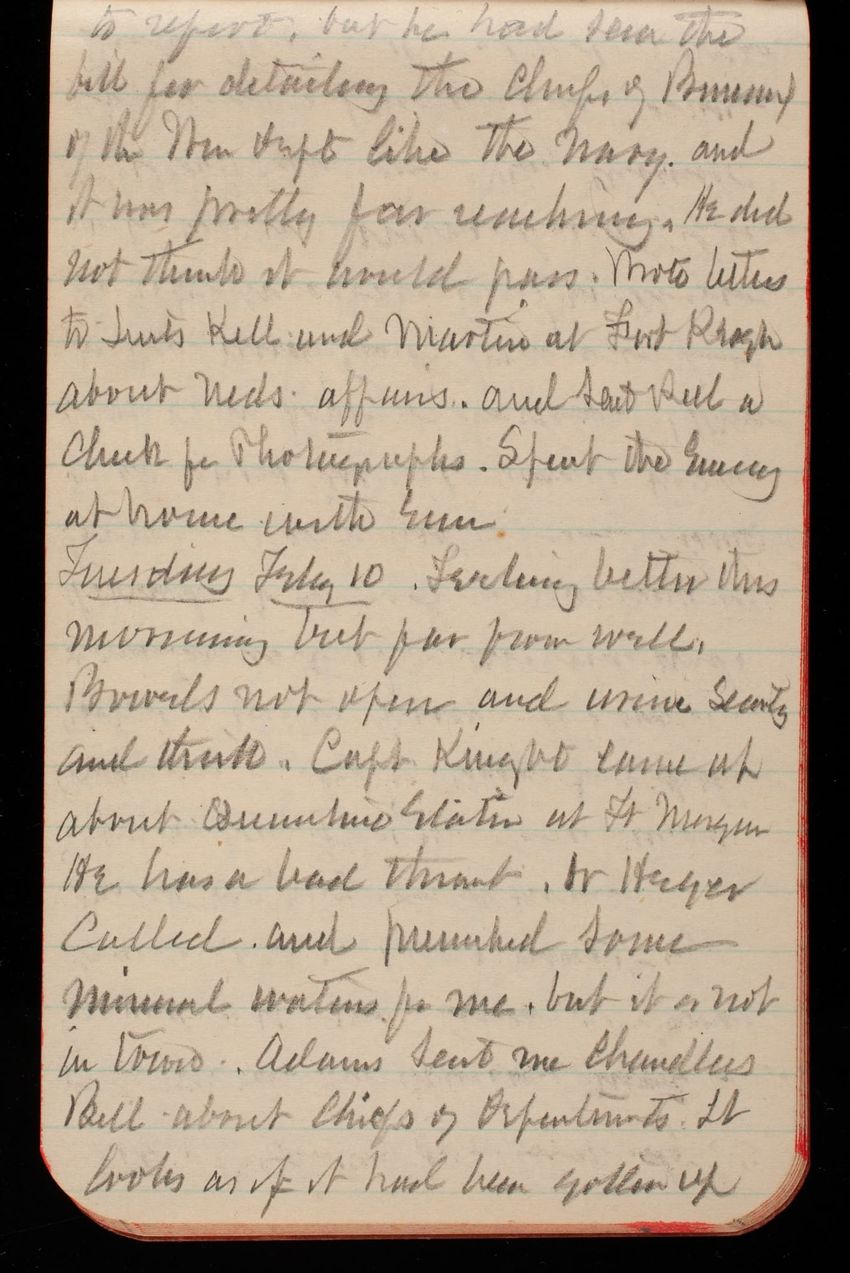 to report, but he had seen the
bill for detailing the Chiefs of Bureaus
of the War Dept like the Navy. and
it was pretty far reaching. He did
not think it would pass. Wrote letters
to Lieuts Kell and Martin at Fort
about Neds affairs. and sent Kell a
Check for Photographs. Spent the Evening
at home with Em
Tuesday Feby 10. Feeling better this
morning but far from well.
Bowels not open and urine Scanty
and thick. Capt Knight came up
about at Ft Morgan
He has a bad throat. Dr
Called. and prescribed some
mineral waters for me. but it is not
in town. Adams sent me Chandlers
Bill about Chiefs of Departments. It
looks as if it had been gotten up